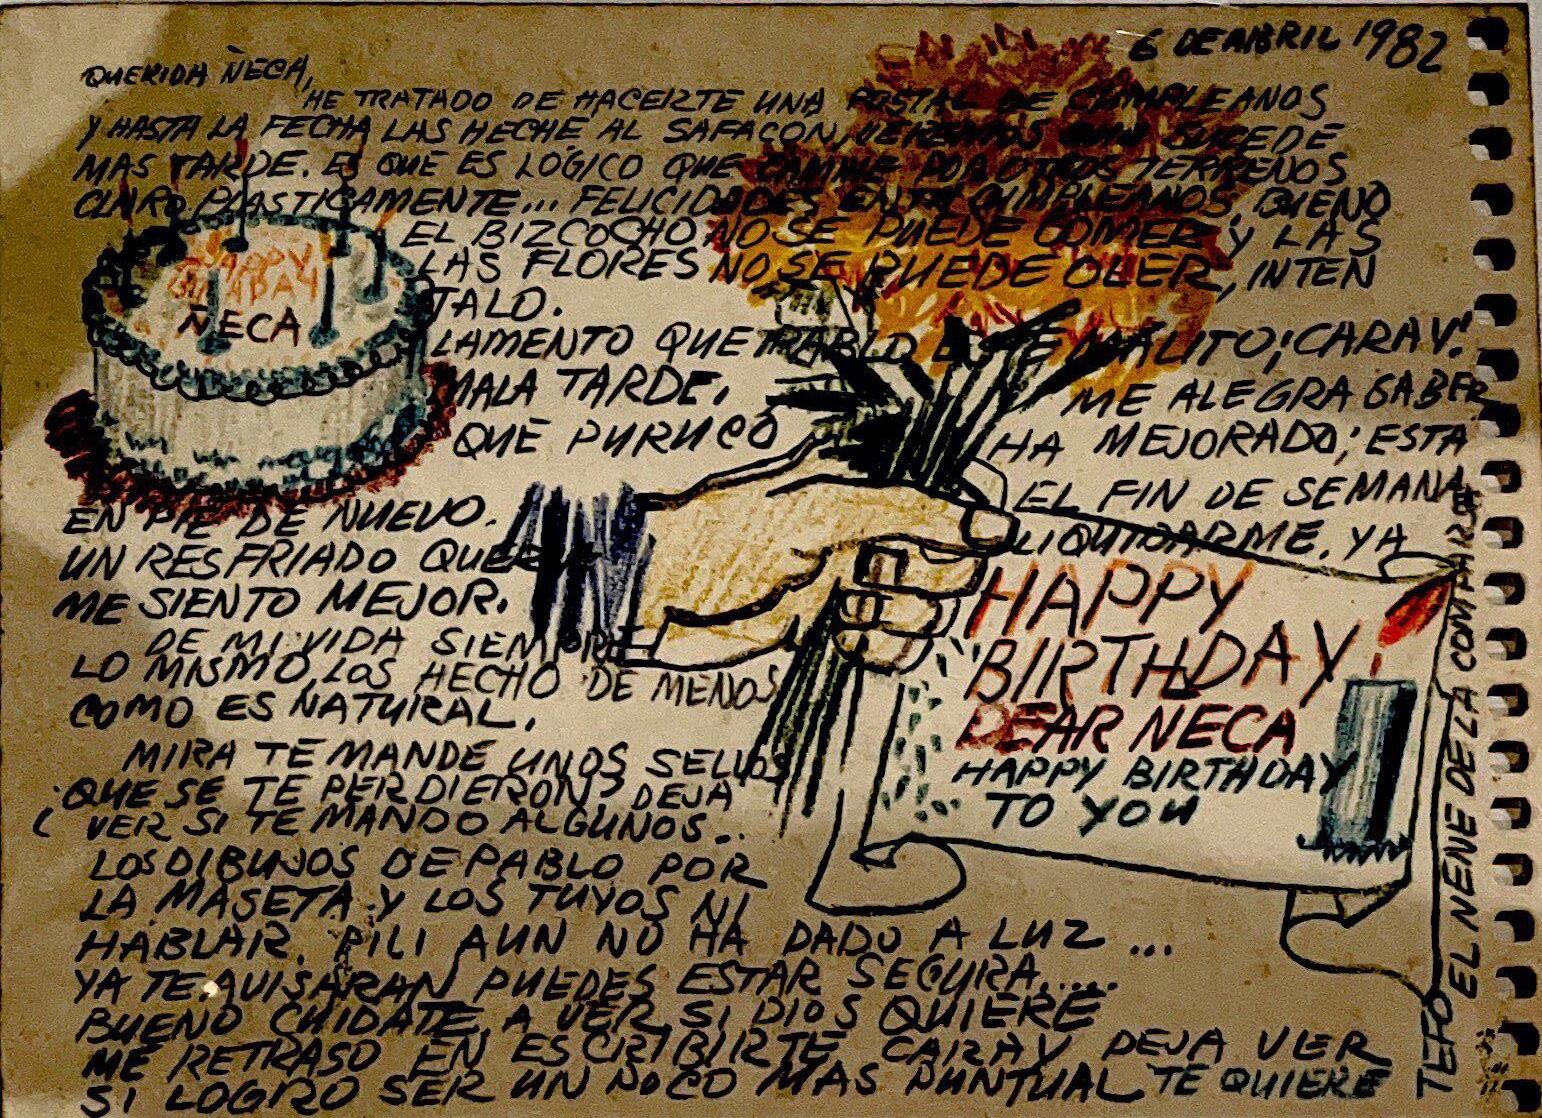 6 DE ABRIL 1982
QUERIDA ÑECA,
HE TRATADO DE HACERTE UNA POSTAL DE CUMPLEANOS
Y HASTA LA FECHA LAS HECHE AL SAFACON, VEREMOS QUE SUCEDE
MAS TARDE. ES QUE ES LÓGICO QUE CAMINE POR OTROS TERRENOS
CLARO PLASTICAMENTE... FELICIDADES EN TU CUMPLEANOS, BUENO
EL BIZCOCHO NO SE PUEDE COMER Y LAS
LAS FLORES NO SE PUEDE OLER, INTEN
TALO.
HAPPY
ÑECA
LAMENTO QUE PABLO ESTE MALITO, ¡CARAY!
MALA TARDE. ME ALEGRA SABER
QUE PURUCO HA MEJORADO; ESTA
EN PIE DE NUEVO. EL FIN DE SEMANA
UN RESFRIADO QUER LIQUIDARME. YA
ME SIENTO MEJOR.
DE MI VIDA SIEMPRE
LO MISMO, LOS HECHO DE MENOS
COMO ES NATURAL.
HAPPY
BIRTHDAY
DEAR NECA
HAPPY BIRTHDAY
TO YOU
MIRA TE MANDE UNOS SELLOS
QUE SE TE PERDIERON? DEJA
VER SI TE MANDO ALGUNOS..
LOS DIBUJOS DE PABLO POR
LA MASETA Y LOS TUYOS NI
HABLAR. PILI AUN NO HA DADO A LUZ ...
YA TE AVISARAN PUEDES ESTAR SEGURA.....
BUENO CUIDATE, A VER, SI DIOS QUIERE
ME RETRASO EN ESCRIBIRTE CARAY DEJA VER
SI LOGRO SER UN POCO MAS PUNTUAL TE QUIERE
TEFO EL NENE DE LA COMPARSA